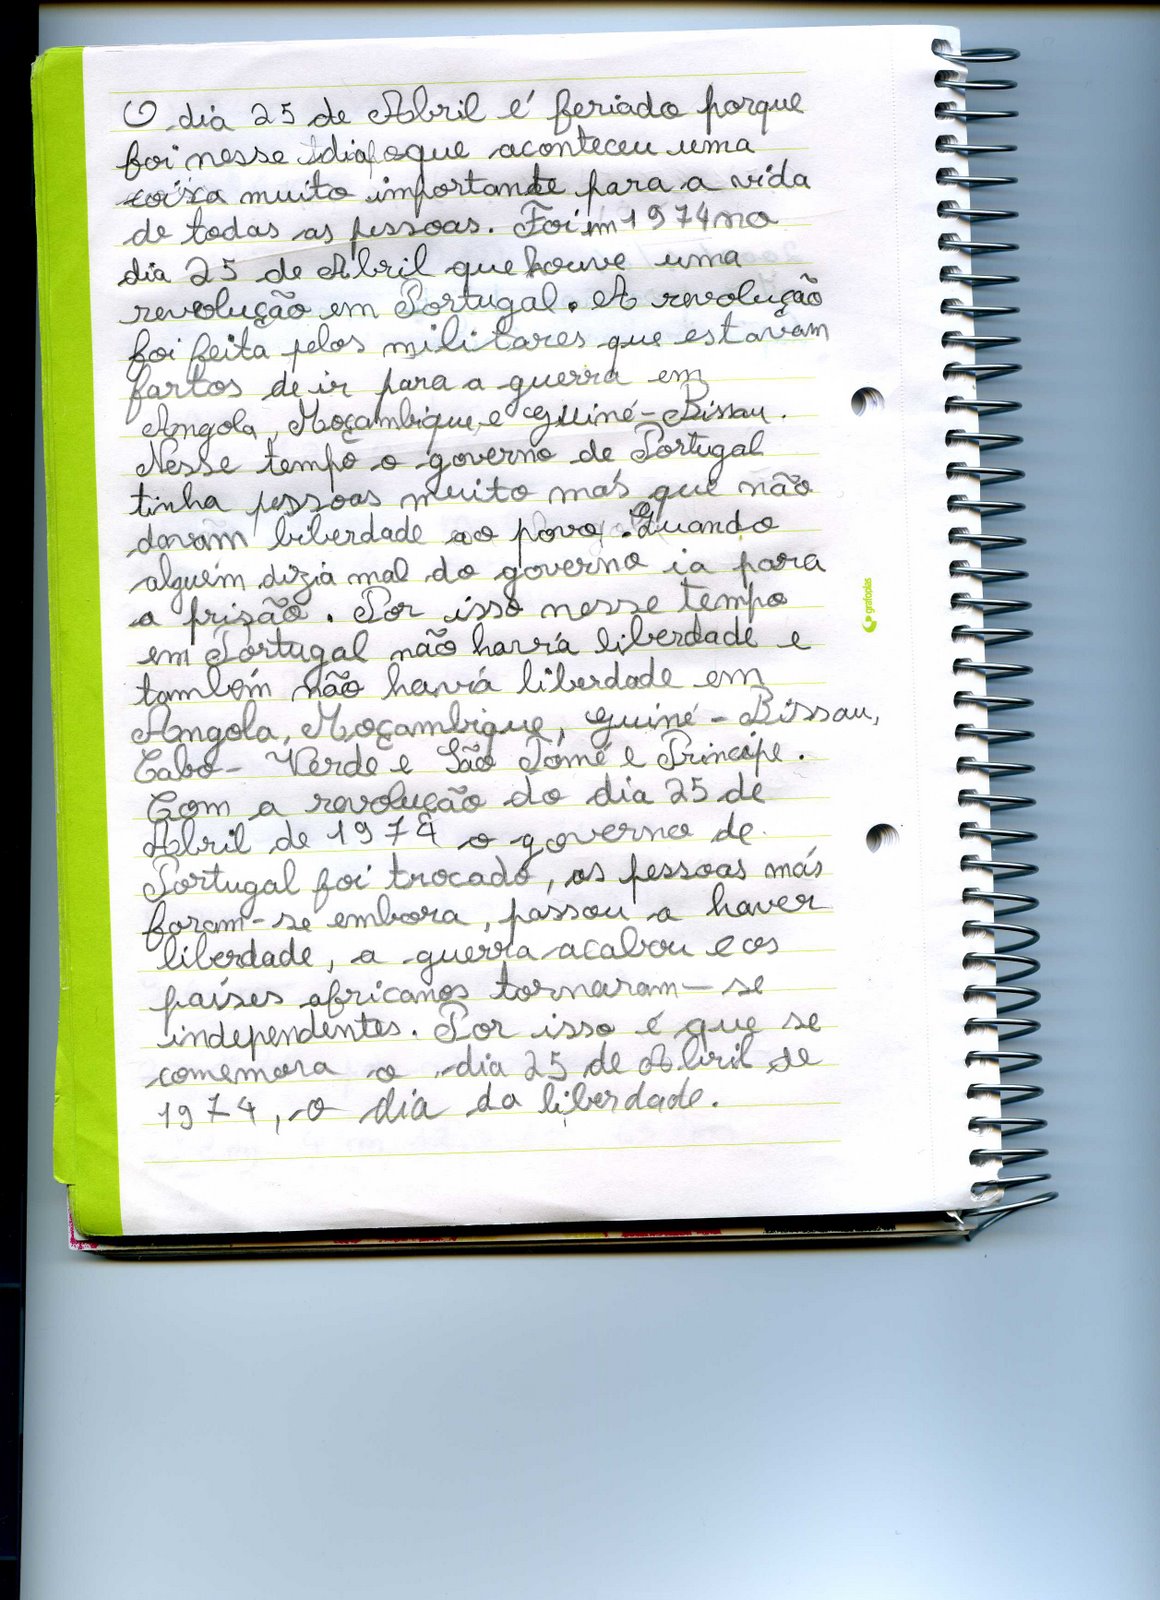 O dia 25 de Abril é feriado porque
foi nesse dia que aconteceu uma
coisa muito importante para a vida
de todas as pessoas. Foi em 1974 no
dia 25 de Abril que houve uma
revolução em Portugal. A revolução
foi feita pelos militares que estavam
fartos de ir para a guerra em
Angola, Moçambique, e Guiné-Bissau.
Nesse tempo o governo de Portugal
tinha pessoas muito más que não
davam liberdade ao povo. Quando
alguém dizia mal do governo ia para
a prisão. Por isso nesse tempo
em Portugal não havia liberdade e
também não havia liberdade em
Angola, Moçambique, Guiné-Bissau,
Cabo-Verde e São Tomé e Príncipe.
Com a revolução do dia 25 de
Abril de 1974 o governo de
Portugal foi trocado, as pessoas más
foram-se embora, passou a haver
liberdade, a guerra acabou e os
países africanos tornaram-se
independentes. Por isso é que se
comemora o dia 25 de Abril de
1974, o dia da liberdade.
grafoplás